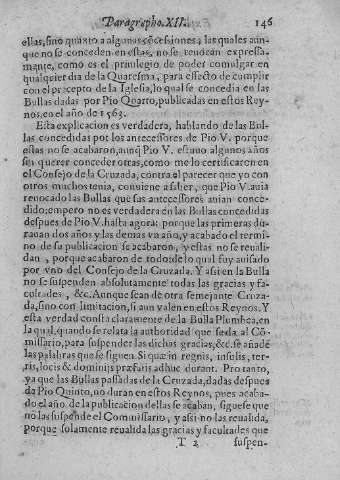 Paragrapho.XII. 146
ellas, sino quãto a algunas cõcesiones, las quales aun-
que no se conceden en estas, no se reuocan expressa-
mente, como es el priuilegio de poder comulgar en
qualquier dia de la Quaresma, para effecto de cumplir
con el precepto de la Iglesia, lo qual se concedia en las
Bullas dadas por Pio Quarto, publicadas en estos Rey-
nos, en el año de 1563.
Esta explicacion es verdadera, hablando de las Bul-
las concedidas por los antecessores de Pio V. porque
estas no se acabaron, aunq̃ Pio V. estuuo algunos años
sin querer conceder otras, como me lo certificaren en
el Consejo de la Cruzada, contra el parecer que yo con
otros muchos tenia, conuiene a saber, que Pio V. auia
reuocado las Bullas que sus antecessores auian conce-
dido; empero no es verdadera en las Bullas concedidas
despues de Pio V. hasta agora: porque las primeras du-
rauan dos años y las demas vn año, y acabado el termi-
no de su publicacion se acabaron, y estas no se reuali-
dan, porque acabaron de todo: de lo qual fuy auisado
por vno del Consejo de la Cruzada. Y assi en la Bulla
no se suspenden absolutamente todas las gracias y fa-
cultades, &c. Aunque sean de otra semejante Cruza-
da, sino con limitacion, si aun valen en estos Reynos. Y
esta verdad consta claramente de la Bulla Plumbea, en
la qual, quando se relata la authoridad que se da al Cõ-
missario, para suspender las dichas gracias, &c. se añadẽ
las palabras que se siguen. Si quæ in regnis, insulis, ter-
ris, locis & dominijs præfatis adhuc durant. Pro tanto,
ya que las Bullas passadas de la Cruzada, dadas despues
de Pio Quinto, no duran en estos Reynos, pues acaba-
do el año de la publicacion dellas se acaban, siguese que
no las suspende el Comissario, y assi no las reualida,
porque solamente reualida las gracias y facultades que
T 2 suspen-